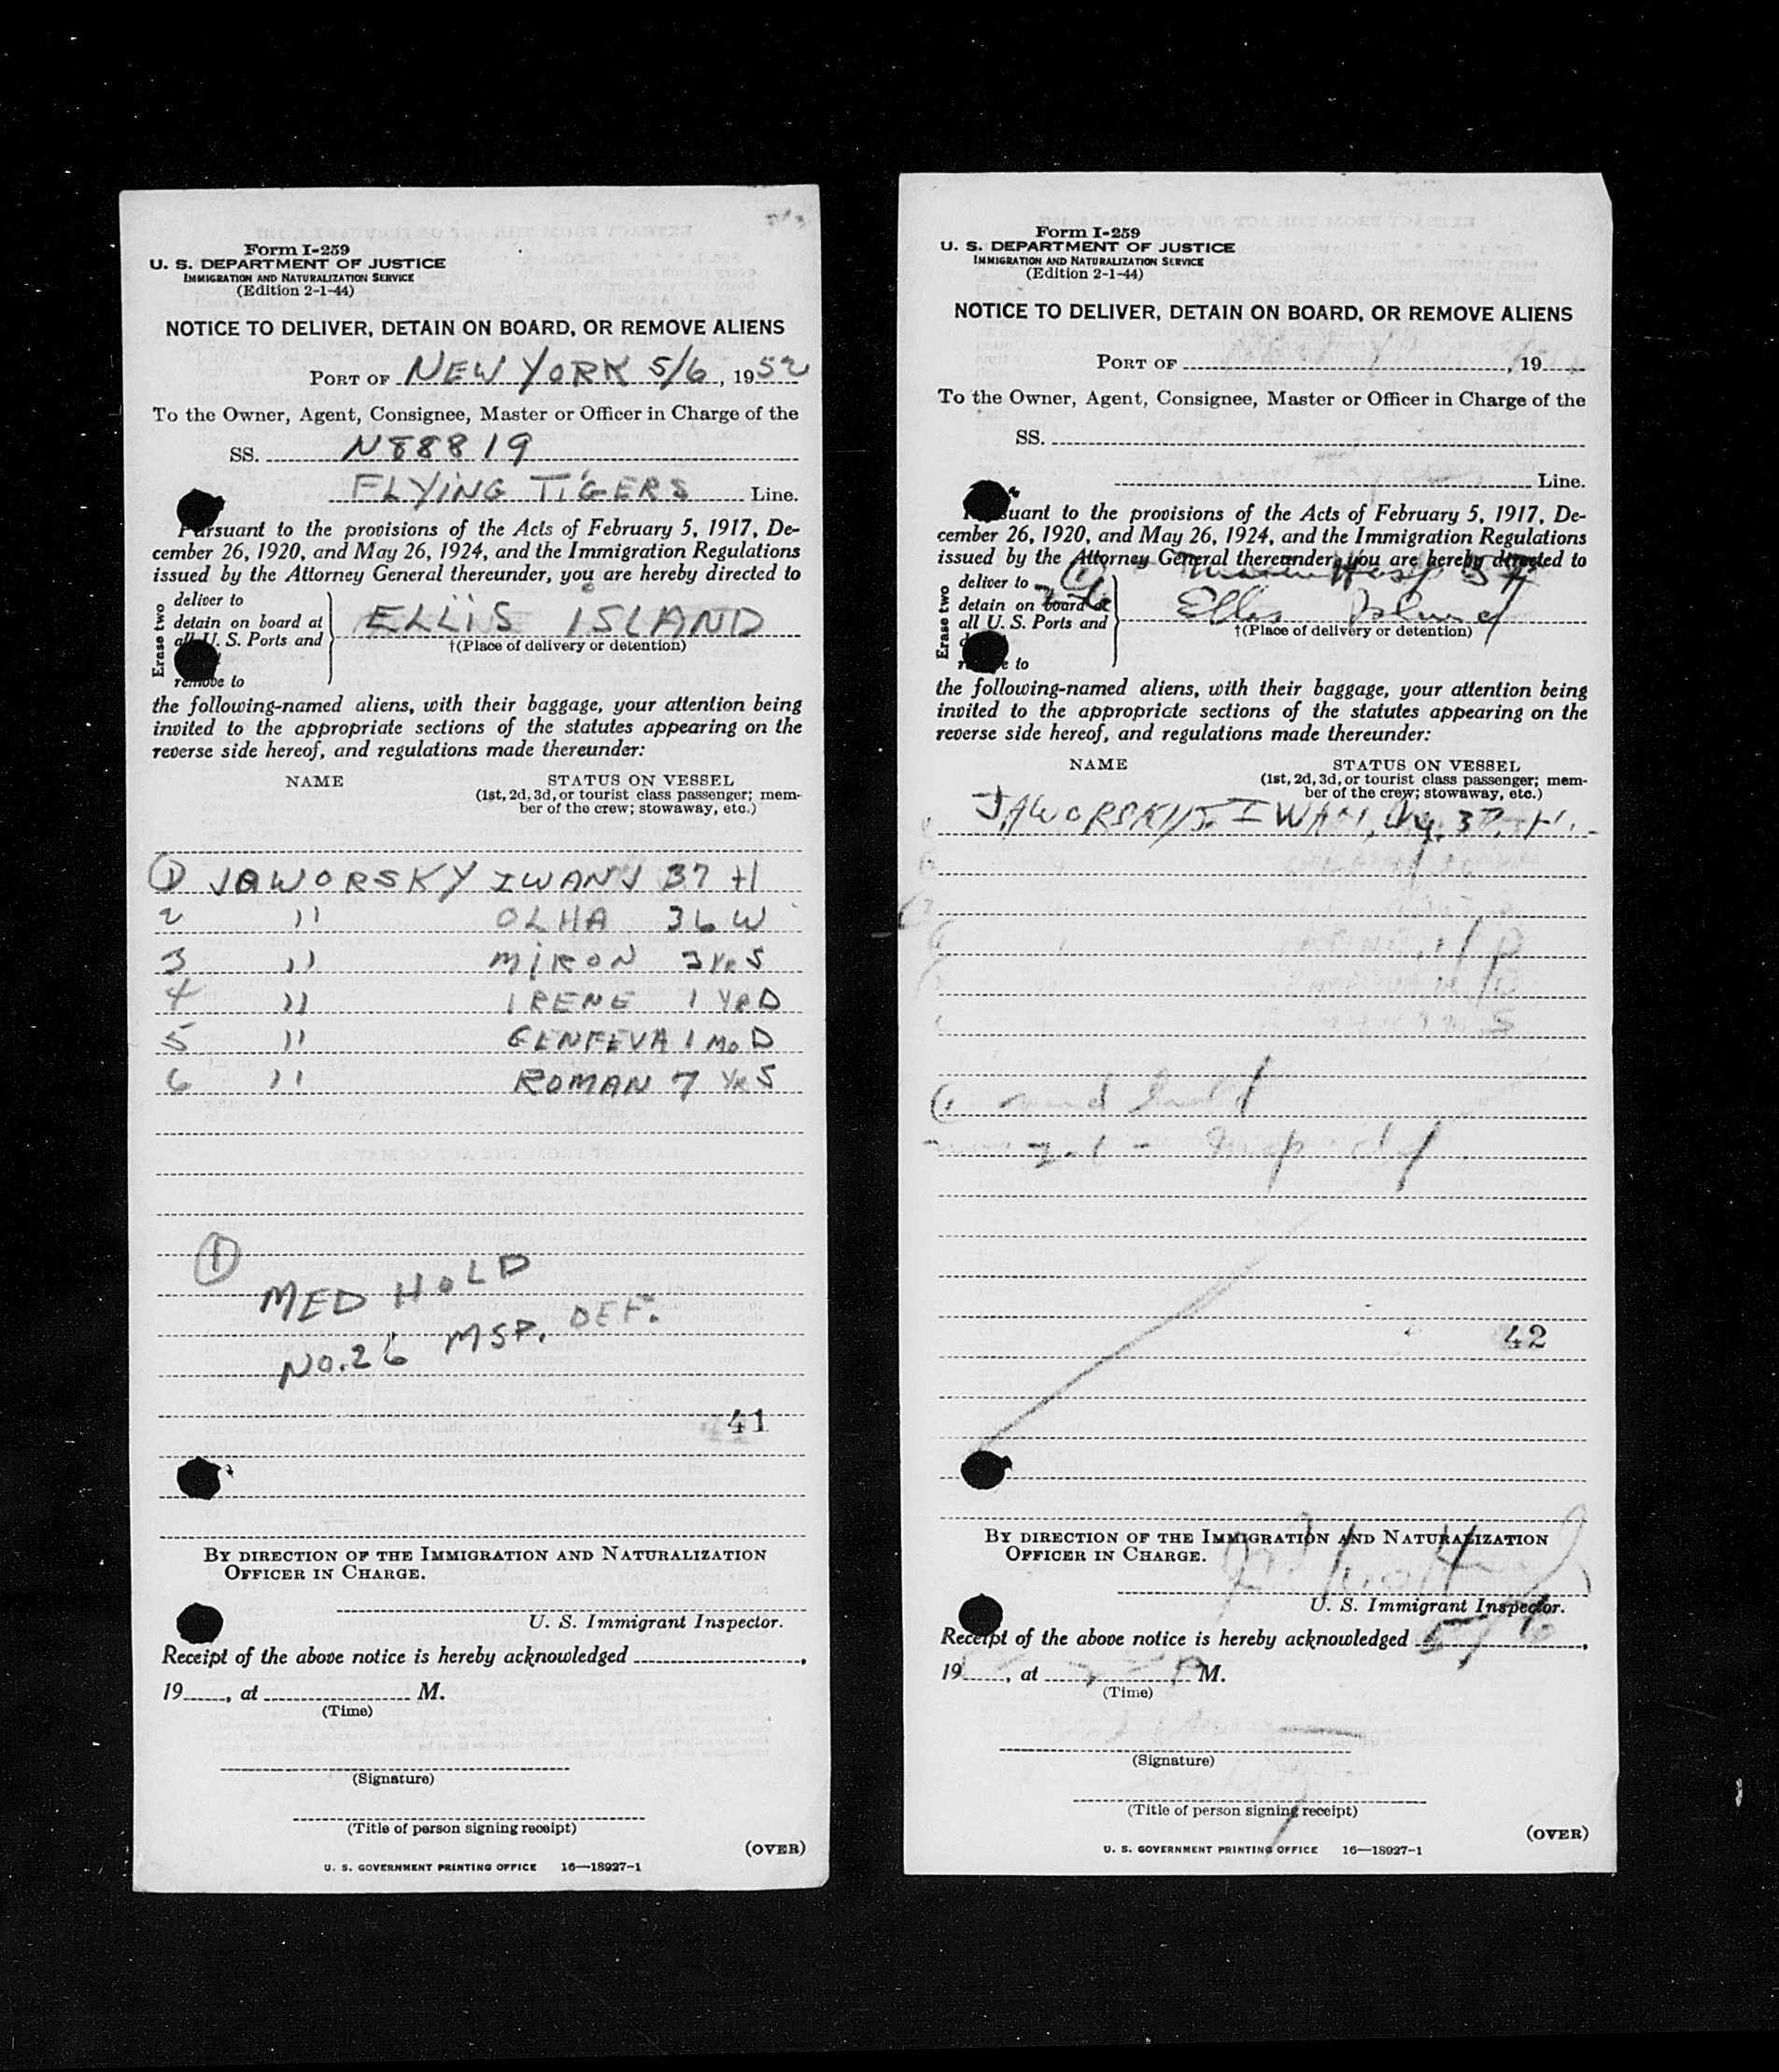 Form I-259
U. S. DEPARTMENT OF JUSTICE
IMMIGRATION AND NATURALIZATION SERVICE
(Edition 2-1-44)
NOTICE TO DELIVER, DETAIN ON BOARD, OR REMOVE ALIENS
PORT OF NEW YORK 5/6, 1952
To the Owner, Agent, Consignee, Master or Officer in Charge of the
SS. N88819
FLYING TIGERS Line.
Pursuant to the provisions of the Acts of February 5, 1917, De-
cember 26, 1920, and May 26, 1924, and the Immigration Regulations
issued by the Attorney General thereunder, you are hereby directed to
Erase two
deliver to
detain on board at
all U. S. Ports and
remove to
ELLIS ISLAND
†(Place of delivery or detention)
the following-named aliens, with their baggage, your attention being
invited to the appropriate sections of the statutes appearing on the
reverse side hereof, and regulations made thereunder:
NAME STATUS ON VESSEL
(1st, 2d, 3d, or tourist class passenger; mem-
ber of the crew; stowaway, etc.)
1 JAWORSKY IWAN J 37 H
2 " OLHA 36 W
3 " MIRON 3 YR S
4 " IRENE 1 YR D
5 " GENFEVA 1 MO D
6 " ROMAN 7 YR S
1
MED HOLD
NO. 26 MSP. DEF.
41
BY DIRECTION OF THE IMMIGRATION AND NATURALIZATION
OFFICER IN CHARGE.
U. S. Immigrant Inspector.
Receipt of the above notice is hereby acknowledged ,
19 , at M.
(Time)
(Signature)
(Title of person signing receipt)
(OVER)
U. S. GOVERNMENT PRINTING OFFICE 16—18927-1
Form I-259
U. S. DEPARTMENT OF JUSTICE
IMMIGRATION AND NATURALIZATION SERVICE
(Edition 2-1-44)
NOTICE TO DELIVER, DETAIN ON BOARD, OR REMOVE ALIENS
PORT OF , 19
To the Owner, Agent, Consignee, Master or Officer in Charge of the
SS.
Line.
Pursuant to the provisions of the Acts of February 5, 1917, De-
cember 26, 1920, and May 26, 1924, and the Immigration Regulations
issued by the Attorney General thereunder, you are hereby directed to
Erase two
deliver to
detain on board at
all U. S. Ports and
remove to
Ellis Island
†(Place of delivery or detention)
the following-named aliens, with their baggage, your attention being
invited to the appropriate sections of the statutes appearing on the
reverse side hereof, and regulations made thereunder:
NAME STATUS ON VESSEL
(1st, 2d, 3d, or tourist class passenger; mem-
ber of the crew; stowaway, etc.)
JAWORSKY IWAN, 37 H.
med hold
42
BY DIRECTION OF THE IMMIGRATION AND NATURALIZATION
OFFICER IN CHARGE.
U. S. Immigrant Inspector.
Receipt of the above notice is hereby acknowledged 5/6,
19 , at M.
(Time)
(Signature)
(Title of person signing receipt)
(OVER)
U. S. GOVERNMENT PRINTING OFFICE 16—18927-1